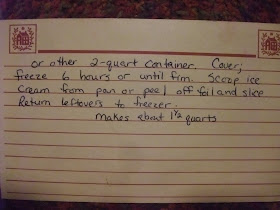 or other 2-quart container. Cover;
freeze 6 hours or until firm. Scoop ice
cream from pan or peel off foil and slice
Return leftovers to freezer.
makes about 1 1/2 quarts